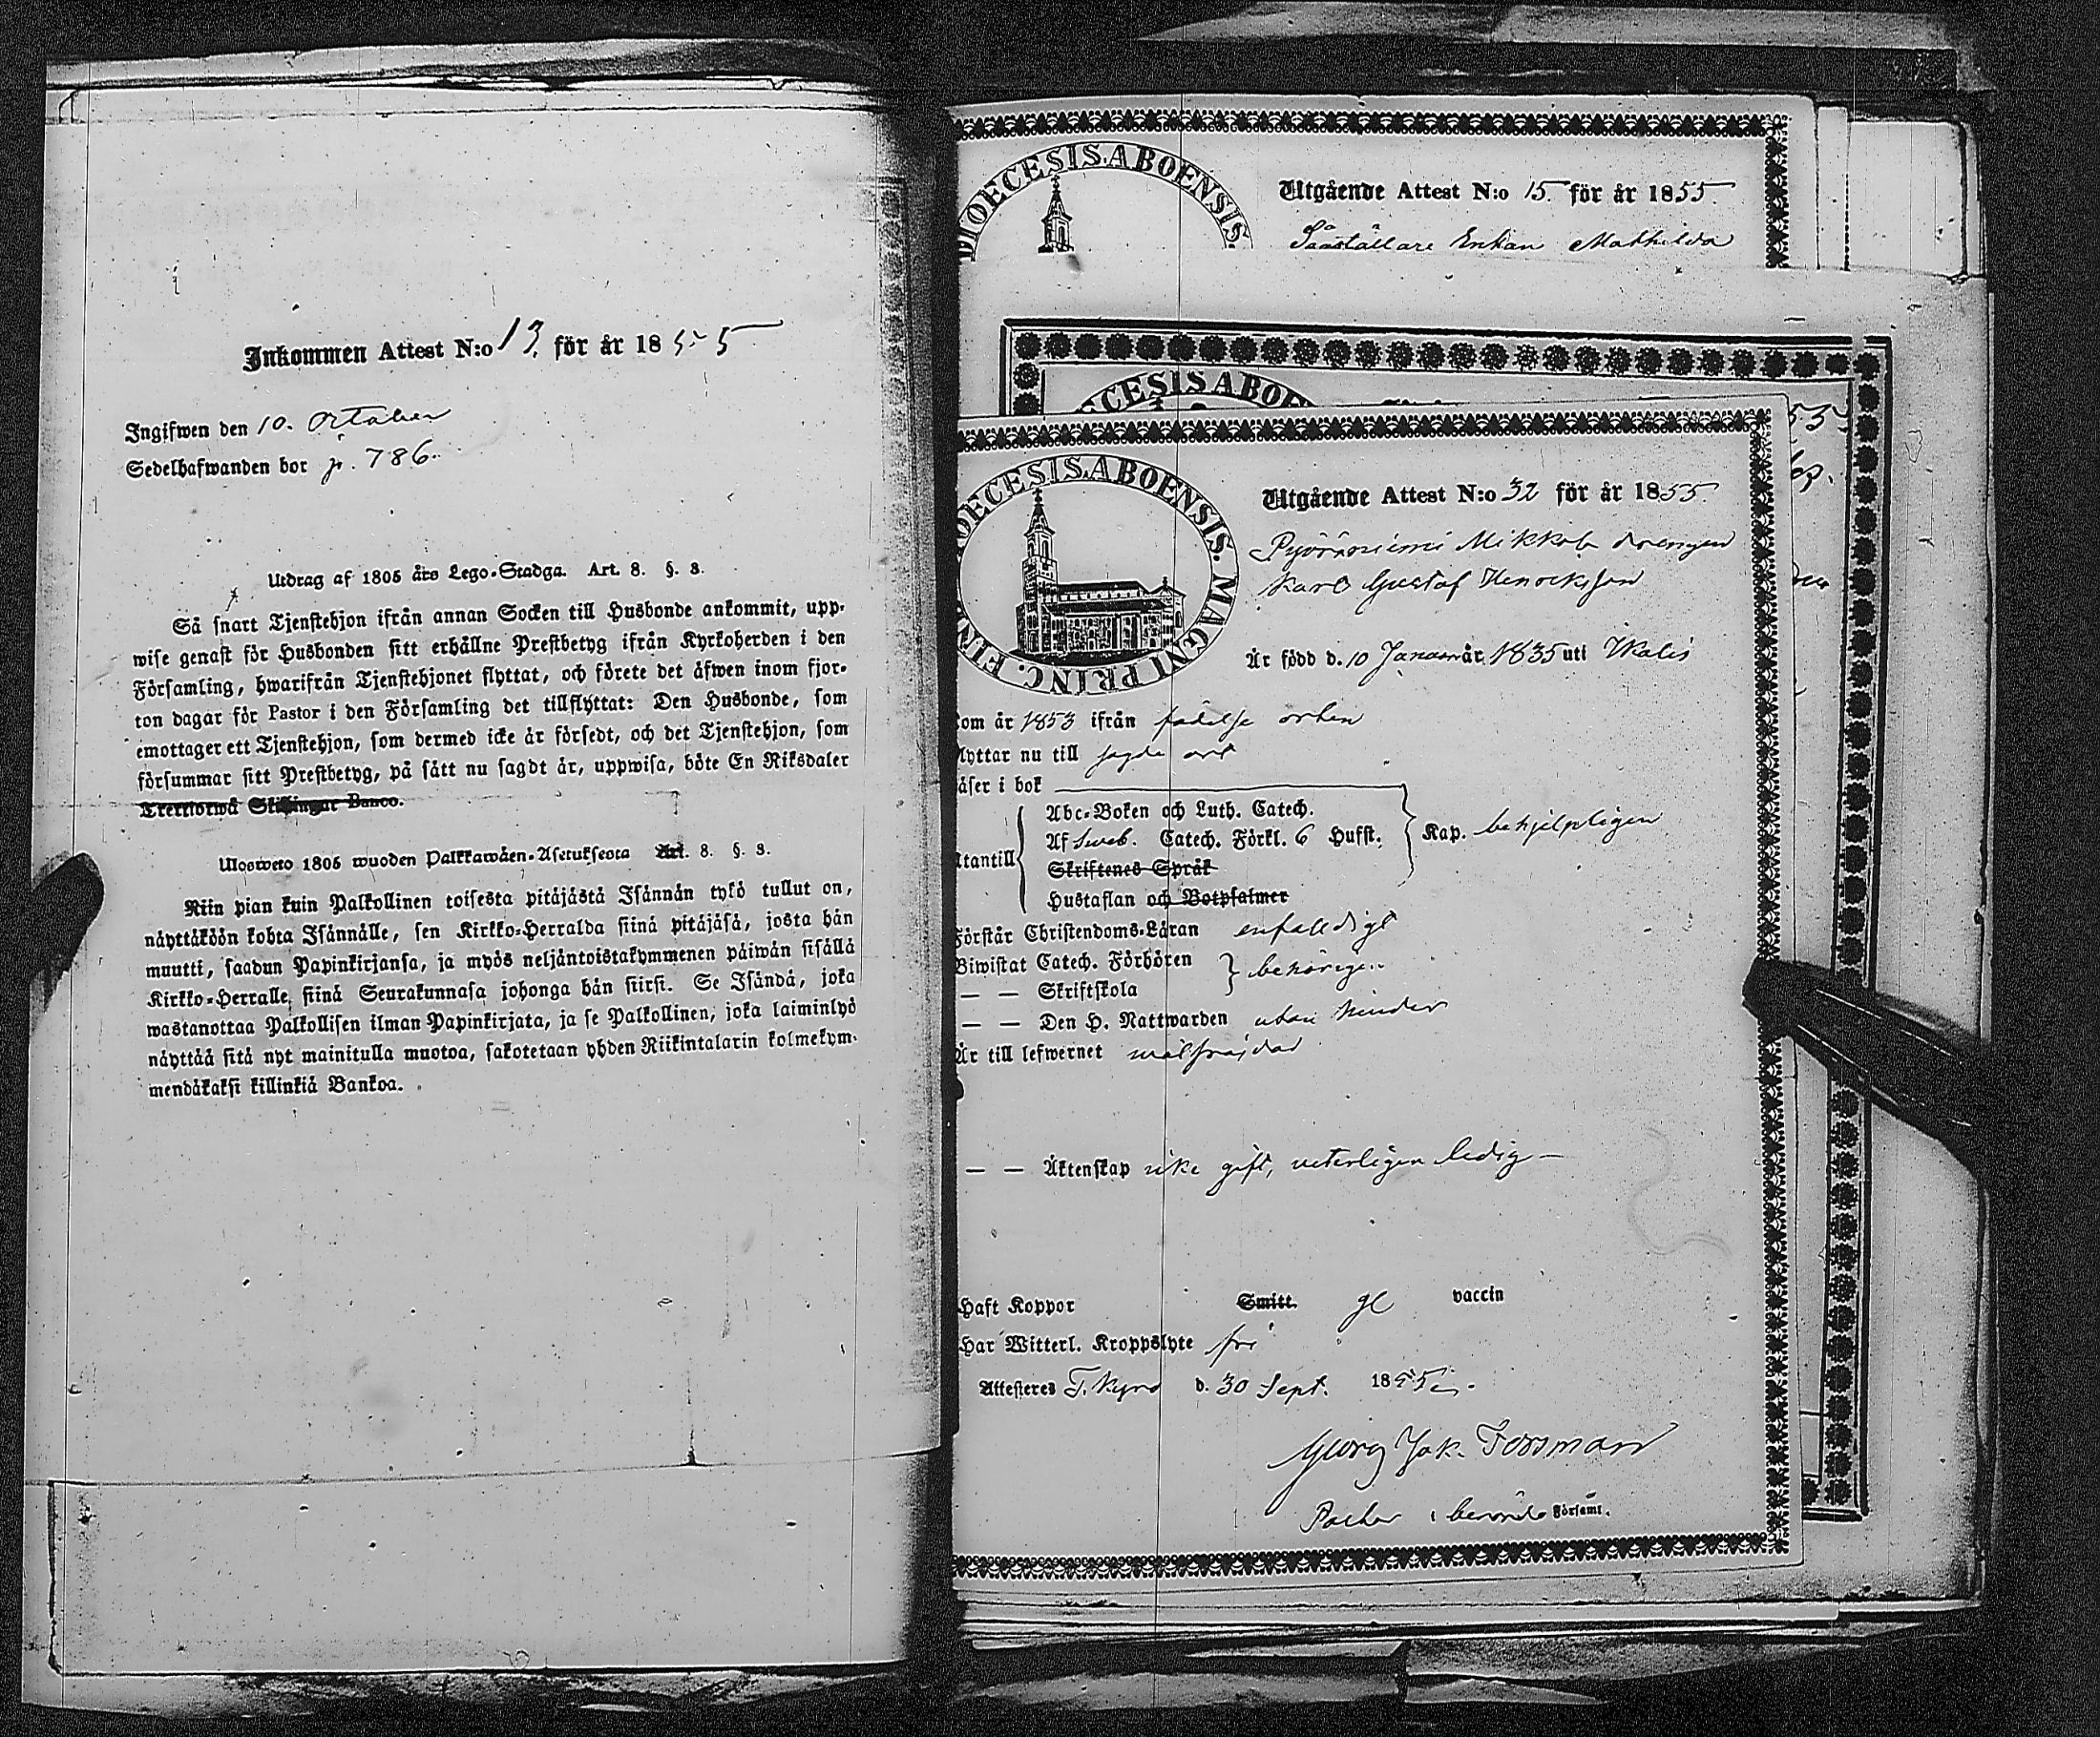 Inkommen Attest N:o 13. för år 1855
Ingifwen den 10. October
Sedelhafwanden bor p. 786.
Utdrag af 1805 års Lego-Stadga. Art. 8. §. 3.
Så snart Tjenstehjon ifrån annan Socken till Husbonde ankommit, upp-
wise genast för Husbonden sitt erhållne Prestbetyg ifrån Kyrkoherden i den
Församling, hwarifrån Tjenstehjonet flyttat, och förete det äfwen inom fjor-
ton dagar för Pastor i den Församling det tillflyttat: Den Husbonde, som
emottager ett Tjenstehjon, som dermed icke är försedt, och det Tjenstehjon, som
försummar sitt Prestbetyg, på sätt nu sagdt är, uppwisa, böte En Riksdaler
Trettiotwå Skillingar Banco.
Ulosweto 1805 wuoden Palkkawäen-Asetuksesta Art. 8. §. 3.
Niin pian kuin Palkollinen toisesta pitäjästä Isännän tykö tullut on,
näyttäköön kohta Isännälle, sen Kirkko-Herralda siinä pitäjäsä, josta hän
muutti, saadun Papinkirjansa, ja myös neljäntoistakymmenen päiwän sisällä
Kirkko-Herralle, siinä Seurakunnasa johonga hän siirsi. Se Isändä, joka
wastanottaa Palkollisen ilman Papinkirjata, ja se Palkollinen, joka laiminlyö
näyttää sitä nyt mainitulla muotoa, sakotetaan yhden Riikintalarin kolmekym-
mendäkaksi killinkiä Bankoa.
DIOECESIS ABOENSIS.
Utgående Attest N:o 15. för år 1855
Enkan Mathilda
ECESIS ABOE
55
DIOECESIS ABOENSIS. MAGNI PRINC. FINL
Utgående Attest N:o 32 för år 1855.
Pyöräniemi Mikkola drengen
Karl Gustaf Henricksson
Är född d. 10 Januari år 1835 uti Ikalis
om år 1853 ifrån födelse orten
lyttar nu till sagde ort
äser i bok
Abc-Boken och Luth. Catech.
Af Sweb. Catech. Förkl. 6 Hufst.
Skriftenes Språk
Hustaflan och Botpsalmer
Utantill
Kap. behjelpligen
Förstår Christendoms-Läran enfaldigt
Biwistat Catech. Förhören
— — Skriftskola
behörigen
— — Den H. Nattwarden utan hinder
Är till lefwernet wälfrejdad
— — Äktenskap icke gift, veterligen ledig —
Haft Koppor Smitt. gl vaccin
Har Witterl. Kroppslyte fri
Attesteres T. Kyro d. 30 Sept. 1855.
Georg Jak. Forsman
Pastor i berörde Församl.